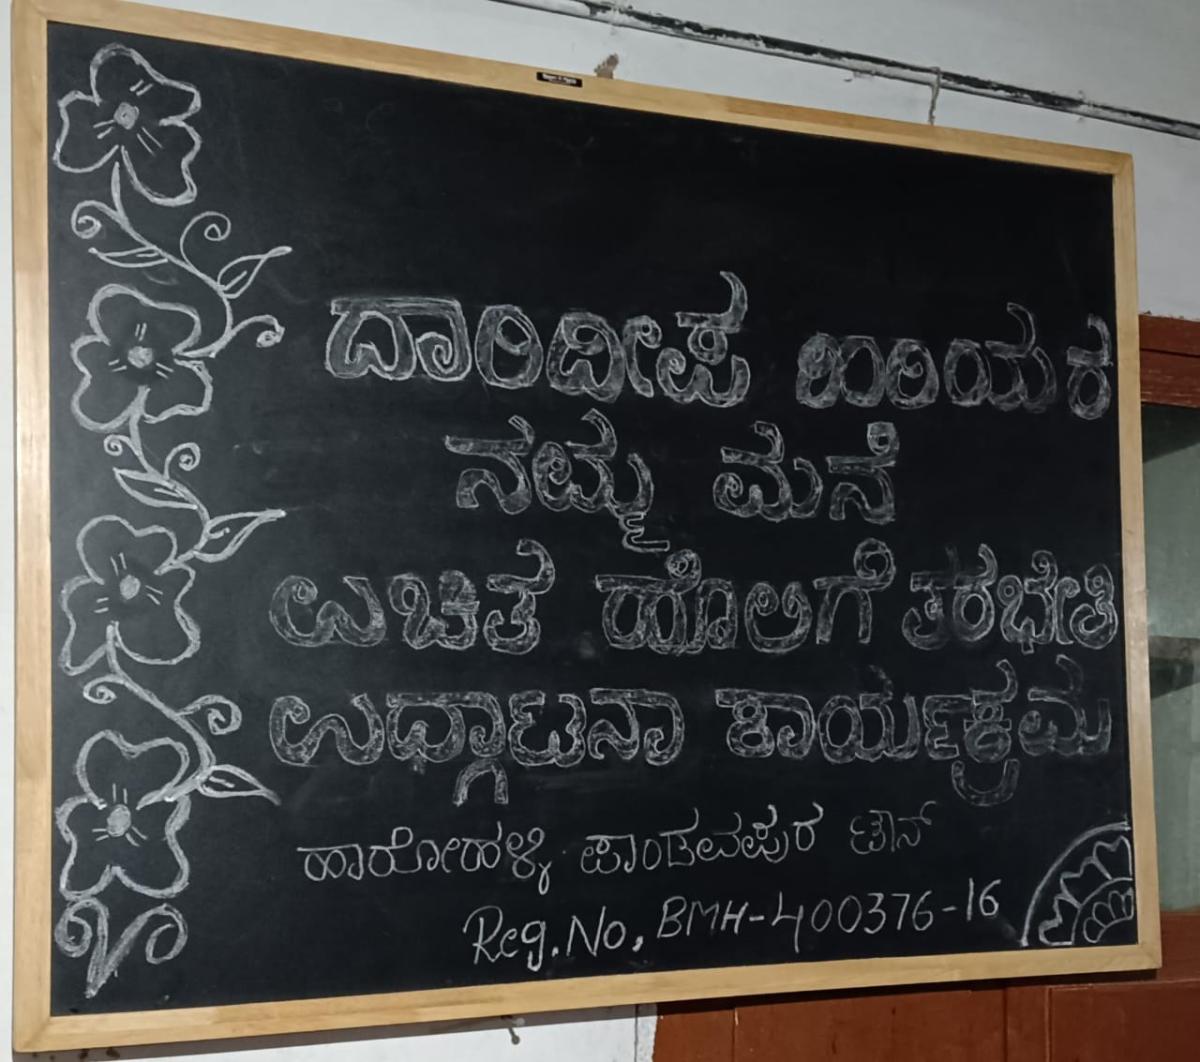 ದಾರಿದೀಪ ಹಿರಿಯರ
ನಮ್ಮ ಮನೆ
ಉಚಿತ ಹೊಲಿಗೆ ತರಭೇತಿ
ಉದ್ಘಾಟನಾ ಕಾರ್ಯಕ್ರಮ
ಹಾರೋಹಳ್ಳಿ ಪಾಂಡವಪುರ ಟೌನ್
Reg.No, BMH-400376-16